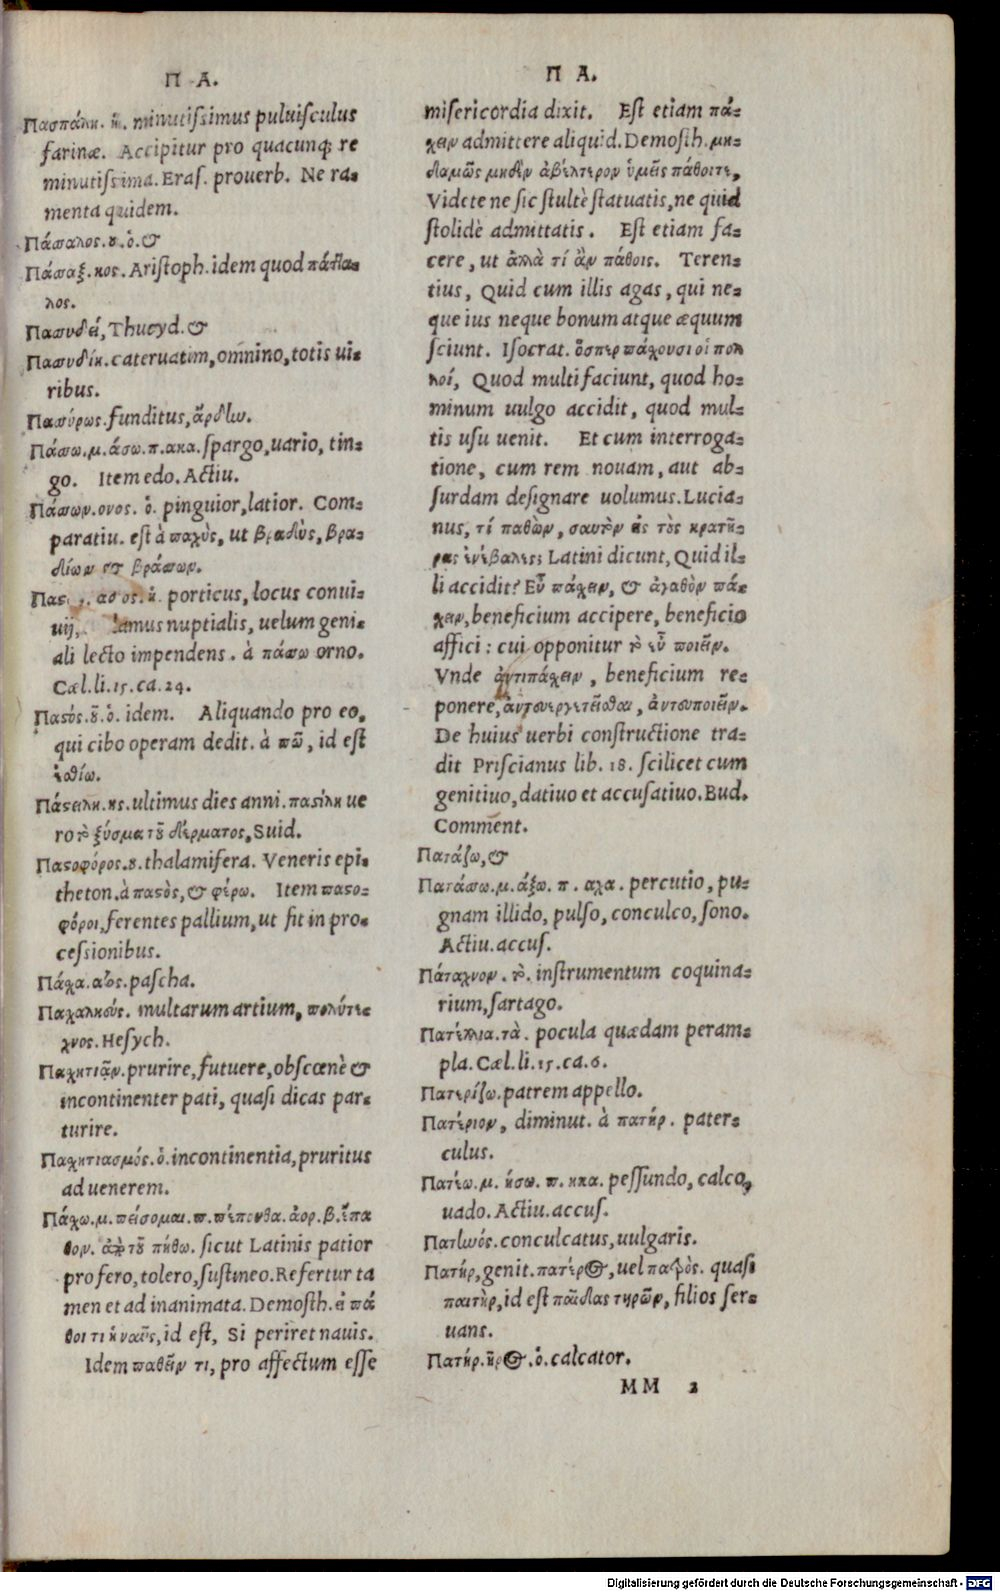 Π Α.
Πασπάλη. η. minutissimus puluisculus
farinæ. Accipitur pro quacunq; re
minutissima. Eras. prouerb. Ne ra-
menta quidem.
Πάσσαλος. ου. ὁ. &
Πάσσαξ. κος. Aristoph. idem quod πάσσα-
λος.
Πασσυδεί, Thucyd. &
Πασσυδίη. cateruatim, omnino, totis ui-
ribus.
Πασσύρως. funditus, ἄρδην.
Πάσσω. μ. άσω. π. ακα. spargo, uario, tin-
go. Item edo. Actiu.
Πάσσων. ονος. ὁ. pinguior, latior. Com-
paratiu. est à παχὺς, ut βραδὺς, βρα-
δίων & βράσσων.
Πας άδος. ἡ. porticus, locus conui-
uij, lamus nuptialis, uelum geni-
ali lecto impendens. à πάσσω orno.
Cæl. li. 15. ca. 24.
Παστός. οῦ. ὁ. idem. Aliquando pro eo,
qui cibo operam dedit. à πῶ, id est
ἐσθίω.
Πάστειλη. ης. ultimus dies anni. παστίλη ue
ro τὸ ξύσμα τοῦ δέρματος, Suid.
Παστοφόρος. ου. thalamifera. Veneris epi-
theton. à παστὸς, & φέρω. Item παστο-
φόροι, ferentes pallium, ut fit in pro-
cessionibus.
Πάσχα. ατος. pascha.
Πασχαλκούς. multarum artium, πολύτε-
χνος. Hesych.
Πασχητιᾷν. prurire, futuere, obscœnè &
incontinenter pati, quasi dicas par-
turire.
Πασχητιασμός. ὁ. incontinentia, pruritus
ad uenerem.
Πάσχω. μ. πείσομαι. π. πέπονθα. ἀορ. β. ἔπα
θον. ἀπὸ τοῦ πήθω. sicut Latinis patior
pro fero, tolero, sustineo. Refertur ta
men et ad inanimata. Demosth. εἰ πά
θοι τι ἡ ναῦς, id est, Si periret nauis.
Idem παθεῖν τι, pro affectum esse
Π Α.
misericordia dixit. Est etiam πά-
σχειν admittere aliquid. Demosth. μη-
δαμῶς μηδὲν ἀβέλτερον ὑμεῖς πάθοιτε,
Videte ne sic stultè statuatis, ne quid
stolidè admittatis. Est etiam fa-
cere, ut ἀλλὰ τί ἂν πάθοις. Teren-
tius, Quid cum illis agas, qui ne-
que ius neque bonum atque æquum
sciunt. Isocrat. ὅσπερ πάσχουσι οἱ πολ
λοί, Quod multi faciunt, quod ho-
minum uulgo accidit, quod mul-
tis usu uenit. Et cum interroga-
tione, cum rem nouam, aut ab-
surdam designare uolumus. Lucia-
nus, τί παθὼν, σαυτὸν εἰς τὸς κρατῆ-
ρας ἐνέβαλες; Latini dicunt, Quid il-
li accidit? Εὖ πάσχειν, & ἀγαθὸν πά-
σχειν, beneficium accipere, beneficio
affici : cui opponitur τὸ εὖ ποιεῖν.
Vnde ἀντιπάσχειν, beneficium re-
ponere, ἀντευεργετεῖσθαι, ἀντευποιεῖν.
De huius uerbi constructione tra-
dit Priscianus lib. 18. scilicet cum
genitiuo, datiuo et accusatiuo. Bud.
Comment.
Πατάζω, &
Πατάσσω. μ. άξω. π. αχα. percutio, pu-
gnam illido, pulso, conculco, sono.
Actiu. accus.
Πάταχνον. τὸ. instrumentum coquina-
rium, sartago.
Πατέλλια. τὰ. pocula quædam peram-
pla. Cæl. li. 15. ca. 6.
Πατερίζω. patrem appello.
Πατέριον, diminut. à πατήρ. pater-
culus.
Πατέω. μ. ήσω. π. ηκα. pessundo, calco,
uado. Actiu. accus.
Πατηνός. conculcatus, uulgaris.
Πατήρ, genit. πατέρος, uel πατρὸς. quasi
παιτὴρ, id est παῖδας τηρῶν, filios ser-
uans.
Πατήρ. ῆρος. ὁ. calcator.
MM 2
Digitalisierung gefördert durch die Deutsche Forschungsgemeinschaft - DFG